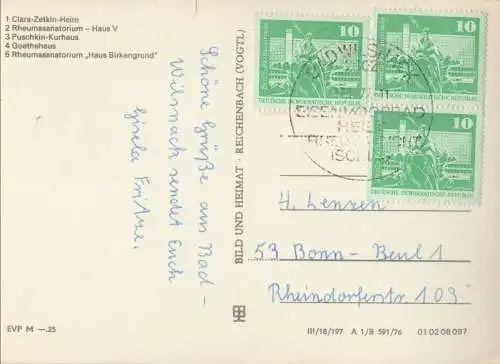 1 Clara-Zetkin-Heim
2 Rheumasanatorium – Haus V
3 Puschkin-Kurhaus
4 Goethehaus
5 Rheumasanatorium „Haus Birkengrund"
Schöne Grüße aus Bad –
Wilsnack sendet Euch
Gisela Fritze.
BILD UND HEIMAT · REICHENBACH (VOGTL)
10
10
10
DEUTSCHE DEMOKRATISCHE REPUBLIK
DEUTSCHE DEMOKRATISCHE REPUBLIK
DEUTSCHE DEMOKRATISCHE REPUBLIK
EISENMOORBAD
4. Lenzen
53 Bonn-Beul 1
Rheindorferstr. 103
EVP M —.25
III/18/197 A 1/B 591/76 01 02 08 097